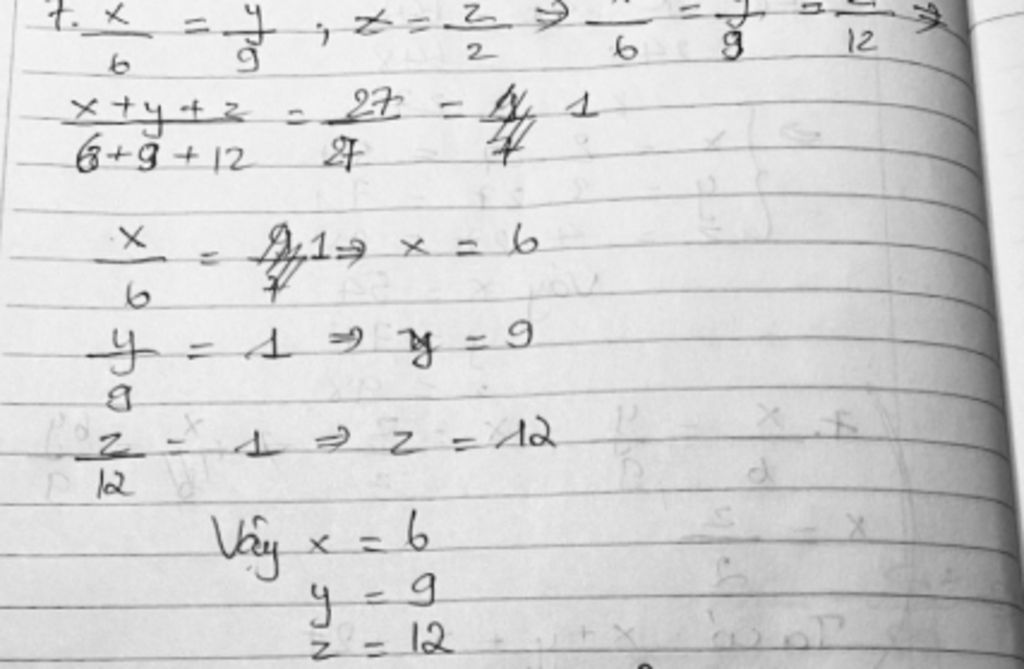 7. x/6 = y/9 ; x = z/2 ⇒ x/6 = y/9 = z/12 ⇒
(x + y + z)/(6 + 9 + 12) = 27/27 = 1
x/6 = 1 ⇒ x = 6
y/9 = 1 ⇒ y = 9
z/12 = 1 ⇒ z = 12
Vậy x = 6
y = 9
z = 12